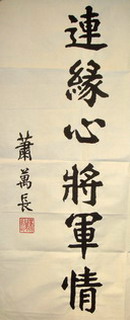 連緣心將軍情
蕭萬長